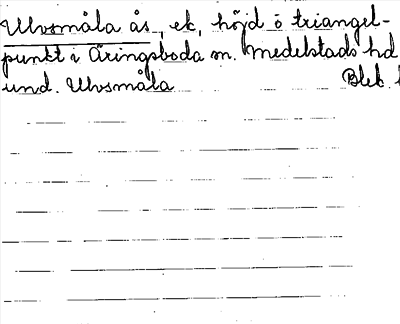 Ulvsmåla ås, ek, höjd o triangel-
punkt i Äringsboda m. Medelstads hd
und. Ulvsmåla Blek.